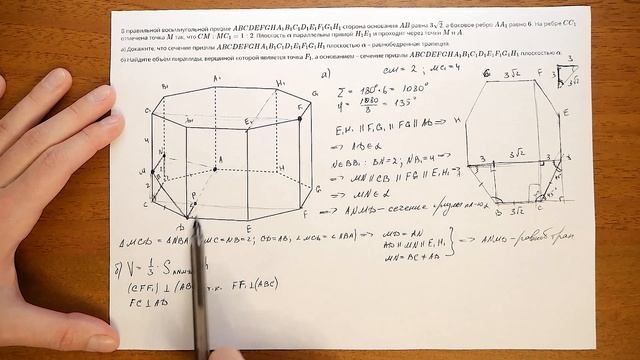 В правильной восьмиугольной призме ABCDEFGHA₁B₁C₁D₁E₁F₁G₁H₁ сторона основания AB равна 3√2, а боковое ребро AA₁ равно 6. На ребре CC₁
отмечена точка M так, что CM : MC₁ = 1 : 2. Плоскость α параллельна прямой H₁E₁ и проходит через точки M и A.
а) Докажите, что сечение призмы ABCDEFGHA₁B₁C₁D₁E₁F₁G₁H₁ плоскостью α – равнобедренная трапеция.
б) Найдите объём пирамиды, вершиной которой является точка F₁, а основанием – сечение призмы ABCDEFGHA₁B₁C₁D₁E₁F₁G₁H₁ плоскостью α.
а)
CM = 2 ; MC₁ = 4
Σ = 180° · 6 = 1080°
= 135°
E₁H₁ ∥ F₁G₁ ∥ FG ∥ AD ⇒
⇒ AD ∈ α
N ∈ BB₁ : BN = 2; NB₁ = 4 ⇒
⇒ MN ∥ CB ∥ FG ∥ E₁H₁ ⇒
⇒ MN ∈ α
⇒ ANMD – сечение
B₁
A₁
H₁
C₁
G₁
D₁
E₁
F₁
4
N
M
2
A
H
G
P
D
E
F
3
3√2
G
F
H
E
3
3√2
3
B
3√2
C
MC = NB = 2; CD = AB,
⇒ MD = AN
AD ∥ MN ∥ E₁H₁
MN = BC ≠ AD
⇒ ANMD – равноб. трап
б) V = 1/3 · S
(CFF₁) ⊥
т.к. FF₁ ⊥ (ABC)
FC ⊥ AD